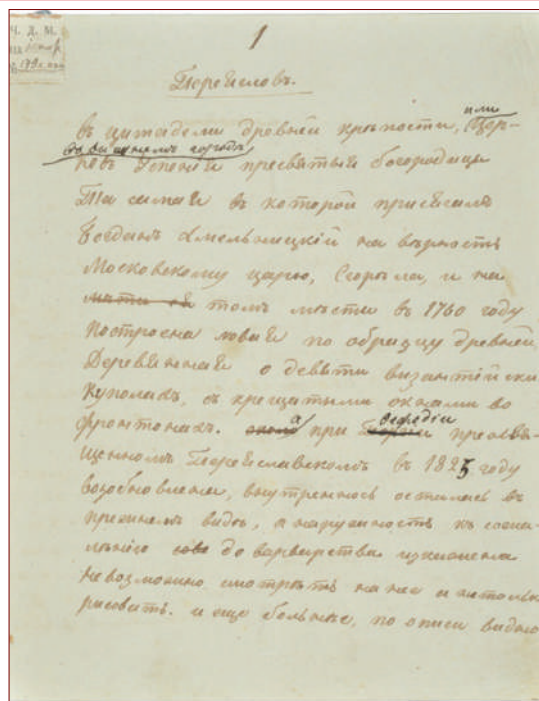 Ч. Д. М.
1
Переяслов.
въ цитадели древней крѣпости, или Цер-
въ вышнемъ городѣ
ковъ Успенія пресвятыя богородицы
Та самая въ которой присягалъ
Богданъ Хмельницкій на вѣрность
Московскому царю, Сгорѣла, и на
томъ мѣсти въ 1760 году
построена новая по образцу древней
Деревянная о девяти византійски
куполахъ, съ крещатыми окнами во
фронтонахъ. а при Гефедіи преосвя-
щенномъ Переяславскомъ въ 1825 году
возобновлена, внутренность осталась въ
прежнемъ видѣ, а наружность къ сожа-
лѣнію до варварства изкажена
невозможно смотрѣть на нее и нетольк
рисовать. и еще больше, по описи видно